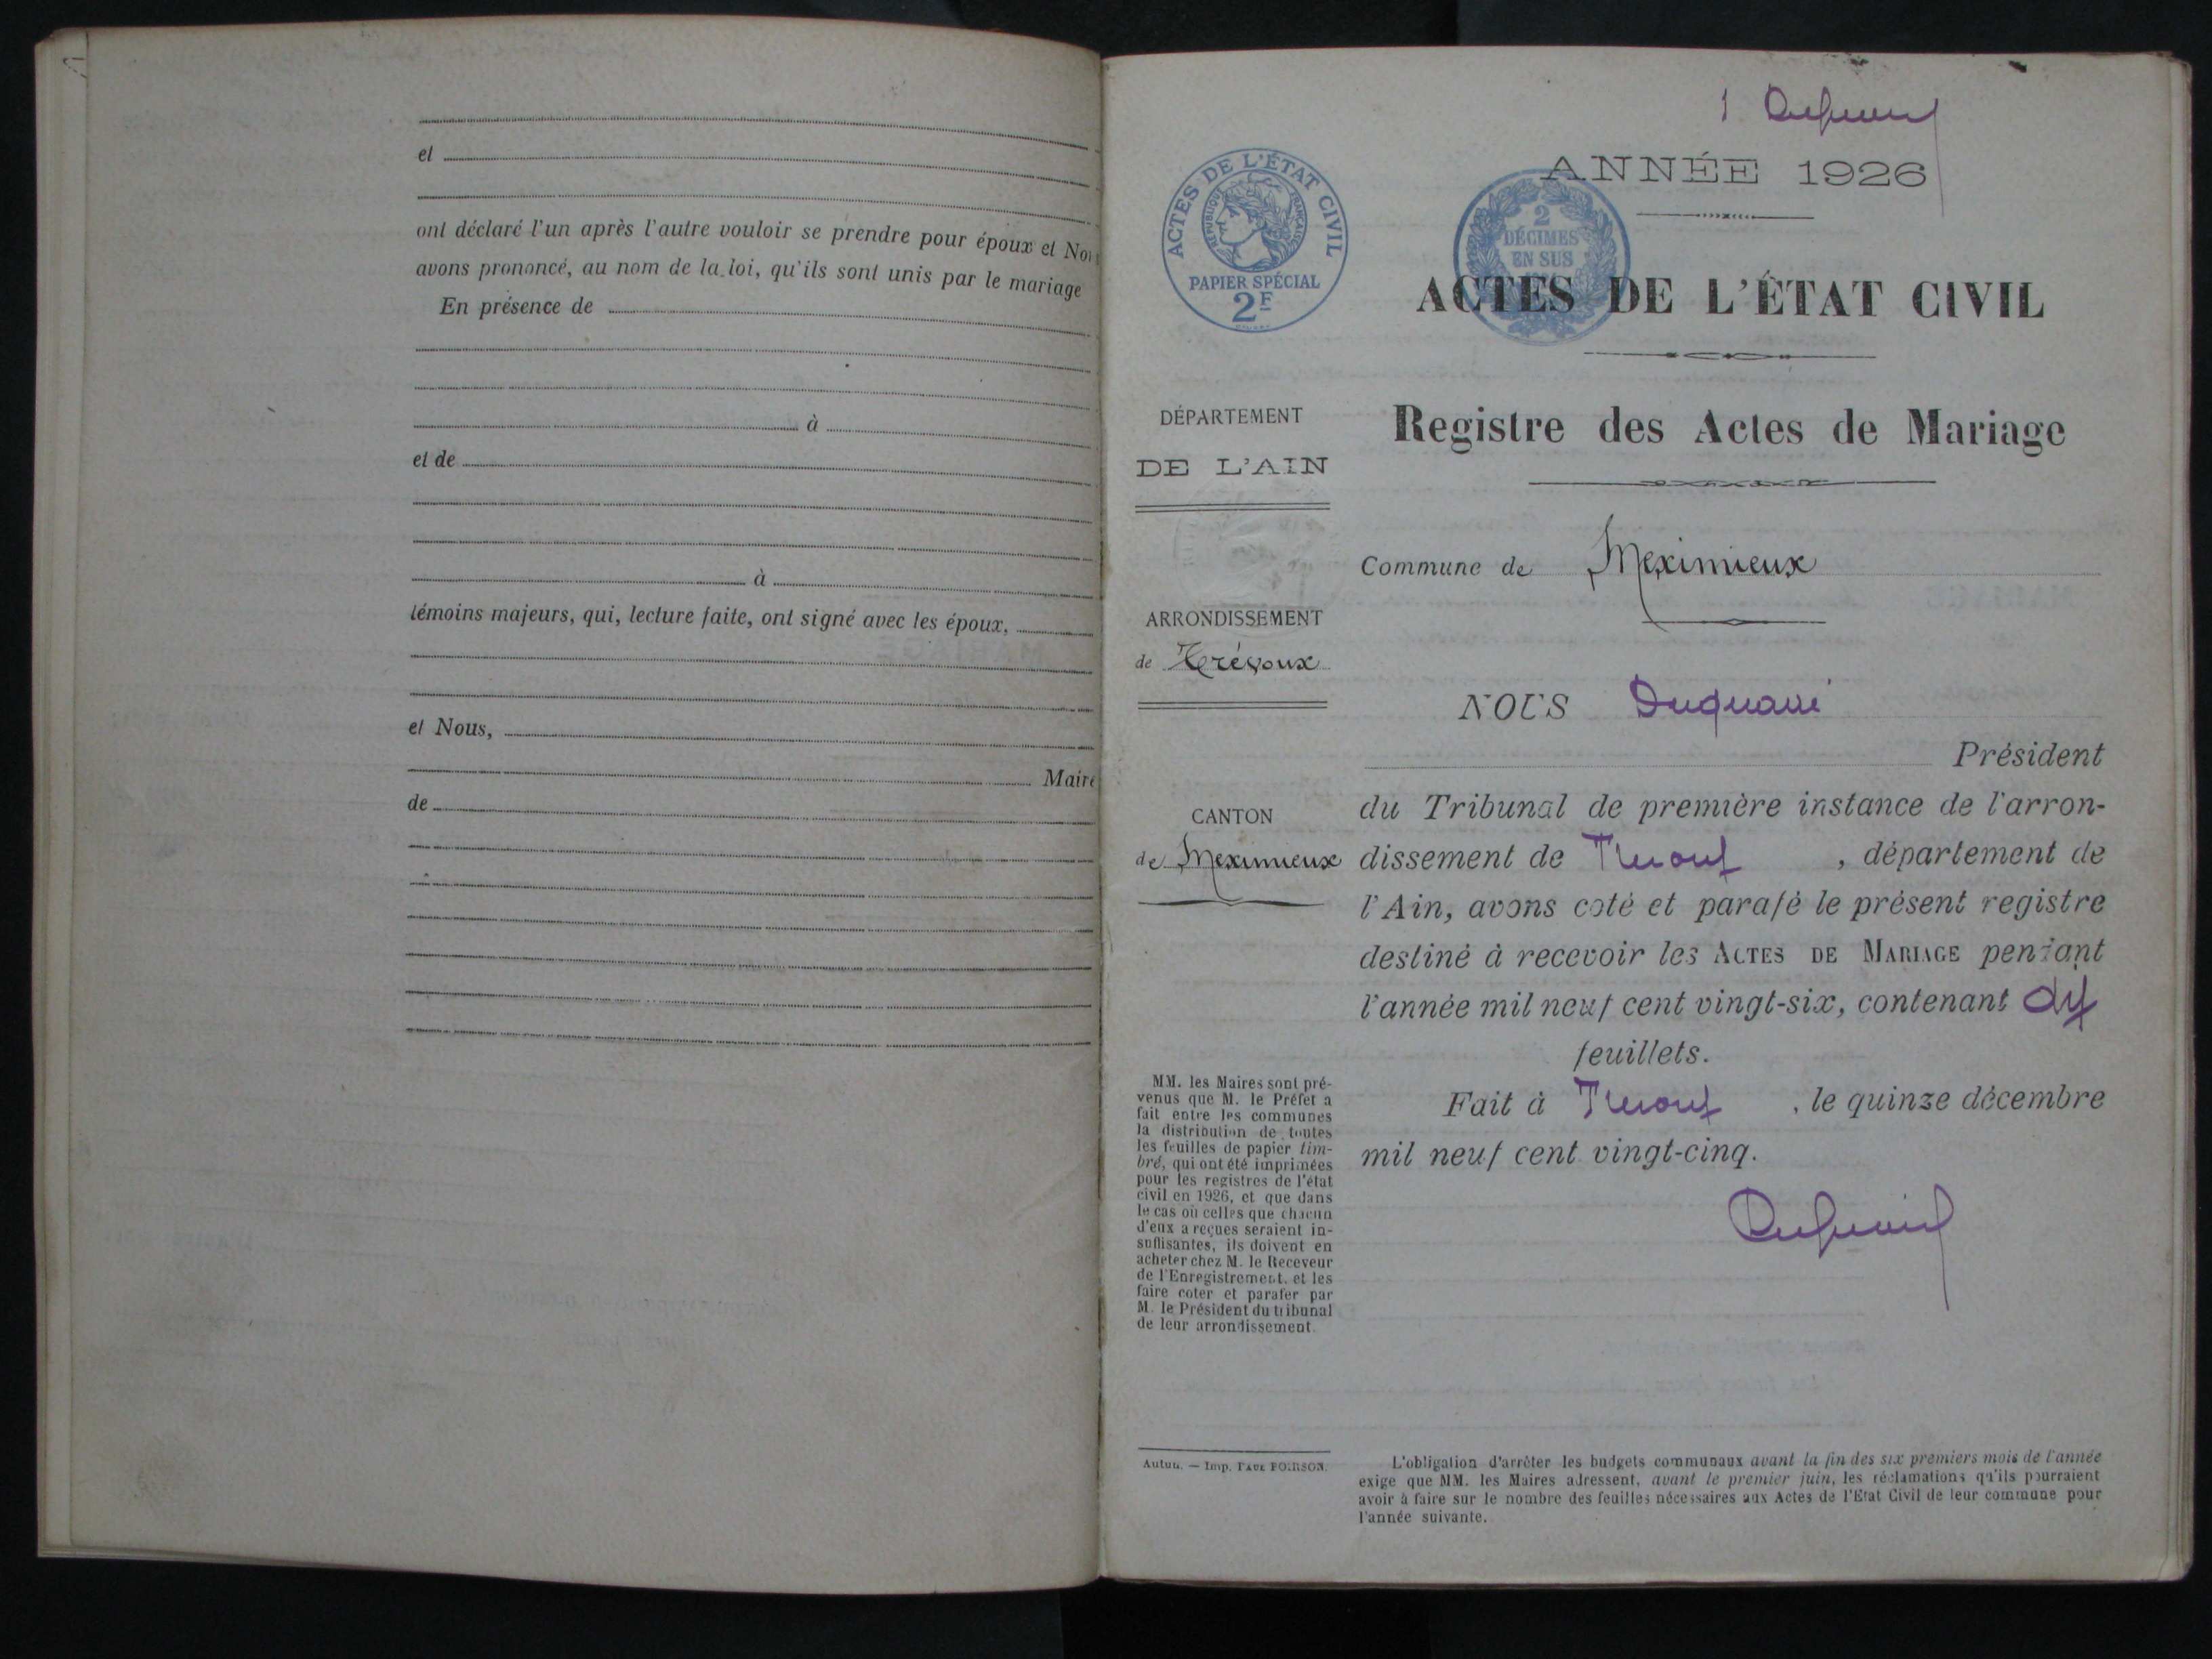 et
ont déclaré l'un après l'autre vouloir se prendre pour époux et Nous
avons prononcé, au nom de la loi, qu'ils sont unis par le mariage
En présence de
à
et de
à
témoins majeurs, qui, lecture faite, ont signé avec les époux,
et Nous,
Maire
de
1
ANNÉE 1926
ACTES DE L'ÉTAT CIVIL
RÉPUBLIQUE FRANÇAISE
PAPIER SPÉCIAL
2F
2
DÉCIMES
EN SUS
ACTES DE L'ÉTAT CIVIL
Registre des Actes de Mariage
DÉPARTEMENT
DE L'AIN
ARRONDISSEMENT
de Trévoux
CANTON
de Meximieux
MM. les Maires sont pré-
venus que M. le Préfet a
fait entre les communes
la distribution de toutes
les feuilles de papier tim-
bré, qui ont été imprimées
pour les registres de l'état
civil en 1926, et que dans
le cas où celles que chacun
d'eux a reçues seraient in-
suffisantes, ils doivent en
acheter chez M. le Receveur
de l'Enregistrement, et les
faire coter et parafer par
M. le Président du tribunal
de leur arrondissement.
Autun. — Imp. PAUL POIRSON.
Commune de Meximieux
NOUS
Président
du Tribunal de première instance de l'arron-
dissement de Trévoux, département de
l'Ain, avons coté et parafé le présent registre
destiné à recevoir les ACTES DE MARIAGE pendant
l'année mil neuf cent vingt-six, contenant dix
feuillets.
Fait à Trévoux, le quinze décembre
mil neuf cent vingt-cinq.
L'obligation d'arrêter les budgets communaux avant la fin des six premiers mois de l'année
exige que MM. les Maires adressent, avant le premier juin, les réclamations qu'ils pourraient
avoir à faire sur le nombre des feuilles nécessaires aux Actes de l'Etat Civil de leur commune pour
l'année suivante.